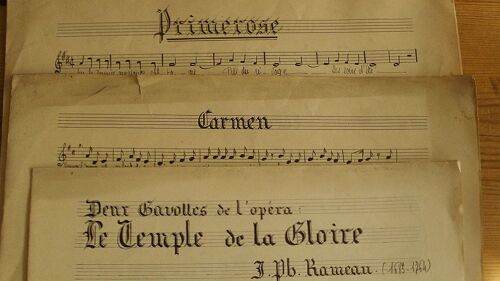 Primerose
Carmen
Deux Gavottes de l'opéra:
Le Temple de la Gloire
J. Ph. Rameau. (1683-1764)